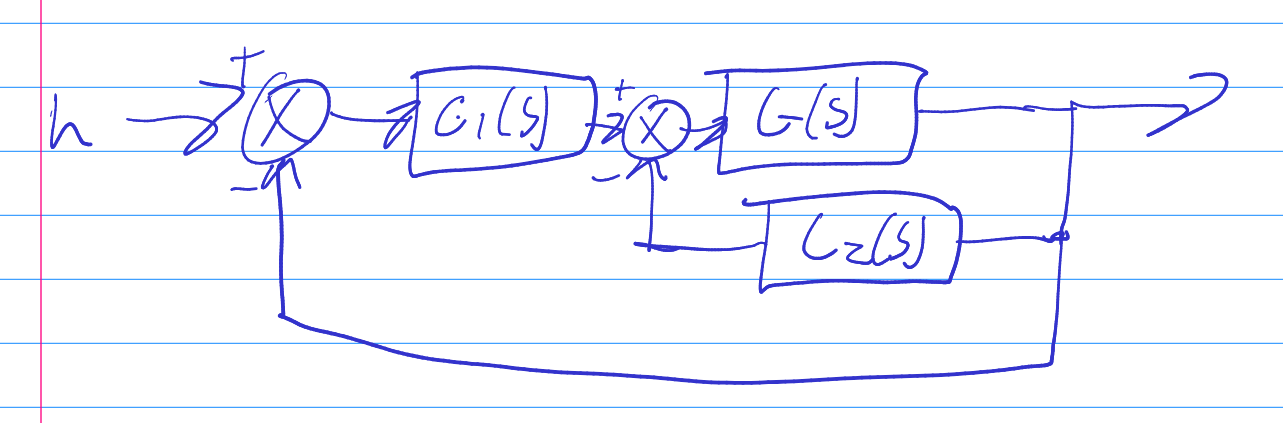 h + - C₁(s) + - G(s)
C₂(s)